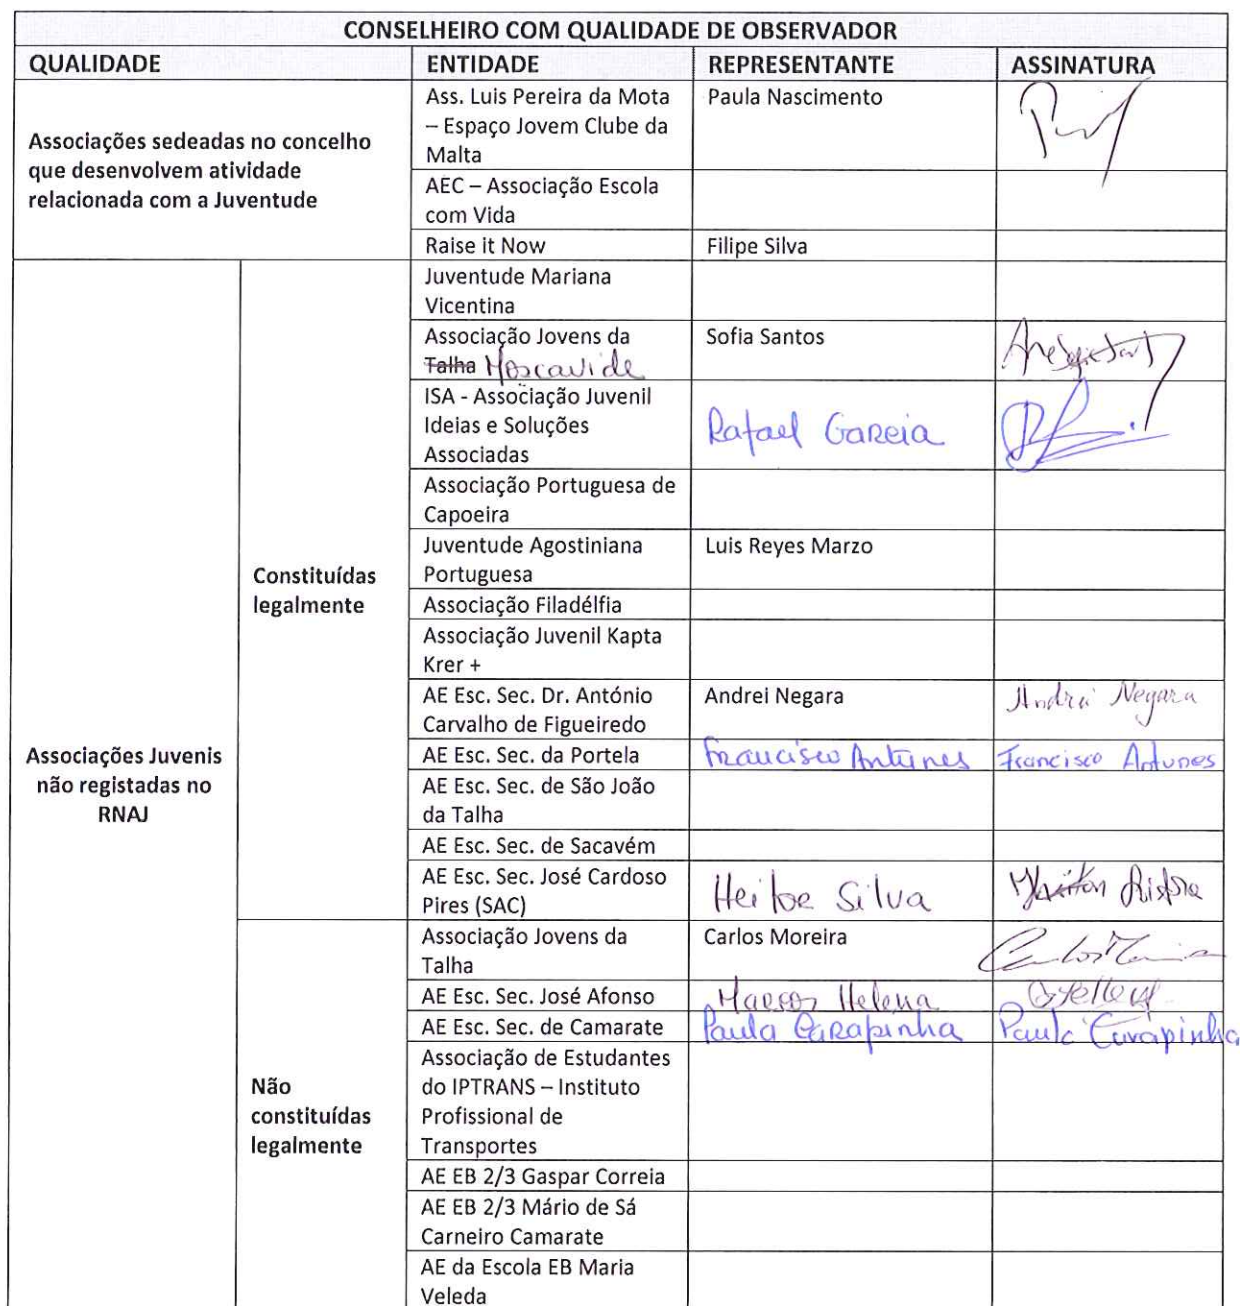 CONSELHEIRO COM QUALIDADE DE OBSERVADOR
QUALIDADE ENTIDADE REPRESENTANTE ASSINATURA
Associações sedeadas no concelho
que desenvolvem atividade
relacionada com a Juventude
Ass. Luis Pereira da Mota
– Espaço Jovem Clube da
Malta
Paula Nascimento
AEC – Associação Escola
com Vida
Raise it Now
Filipe Silva
Associações Juvenis
não registadas no
RNAJ
Constituídas
legalmente
Juventude Mariana
Vicentina
Associação Jovens da
Talha Moscavide
Sofia Santos
ISA - Associação Juvenil
Ideias e Soluções
Associadas
Rafael Garcia
Associação Portuguesa de
Capoeira
Juventude Agostiniana
Portuguesa
Luis Reyes Marzo
Associação Filadélfia
Associação Juvenil Kapta
Krer +
AE Esc. Sec. Dr. António
Carvalho de Figueiredo
Andrei Negara
Andrei Negara
AE Esc. Sec. da Portela
Francisco Antunes
Francisco Antunes
AE Esc. Sec. de São João
da Talha
AE Esc. Sec. de Sacavém
AE Esc. Sec. José Cardoso
Pires (SAC)
Heitor Silva
Não
constituídas
legalmente
Associação Jovens da
Talha
Carlos Moreira
AE Esc. Sec. José Afonso
Marcos Helena
AE Esc. Sec. de Camarate
Paula Carapinha
Paula Carapinha
Associação de Estudantes
do IPTRANS – Instituto
Profissional de
Transportes
AE EB 2/3 Gaspar Correia
AE EB 2/3 Mário de Sá
Carneiro Camarate
AE da Escola EB Maria
Veleda